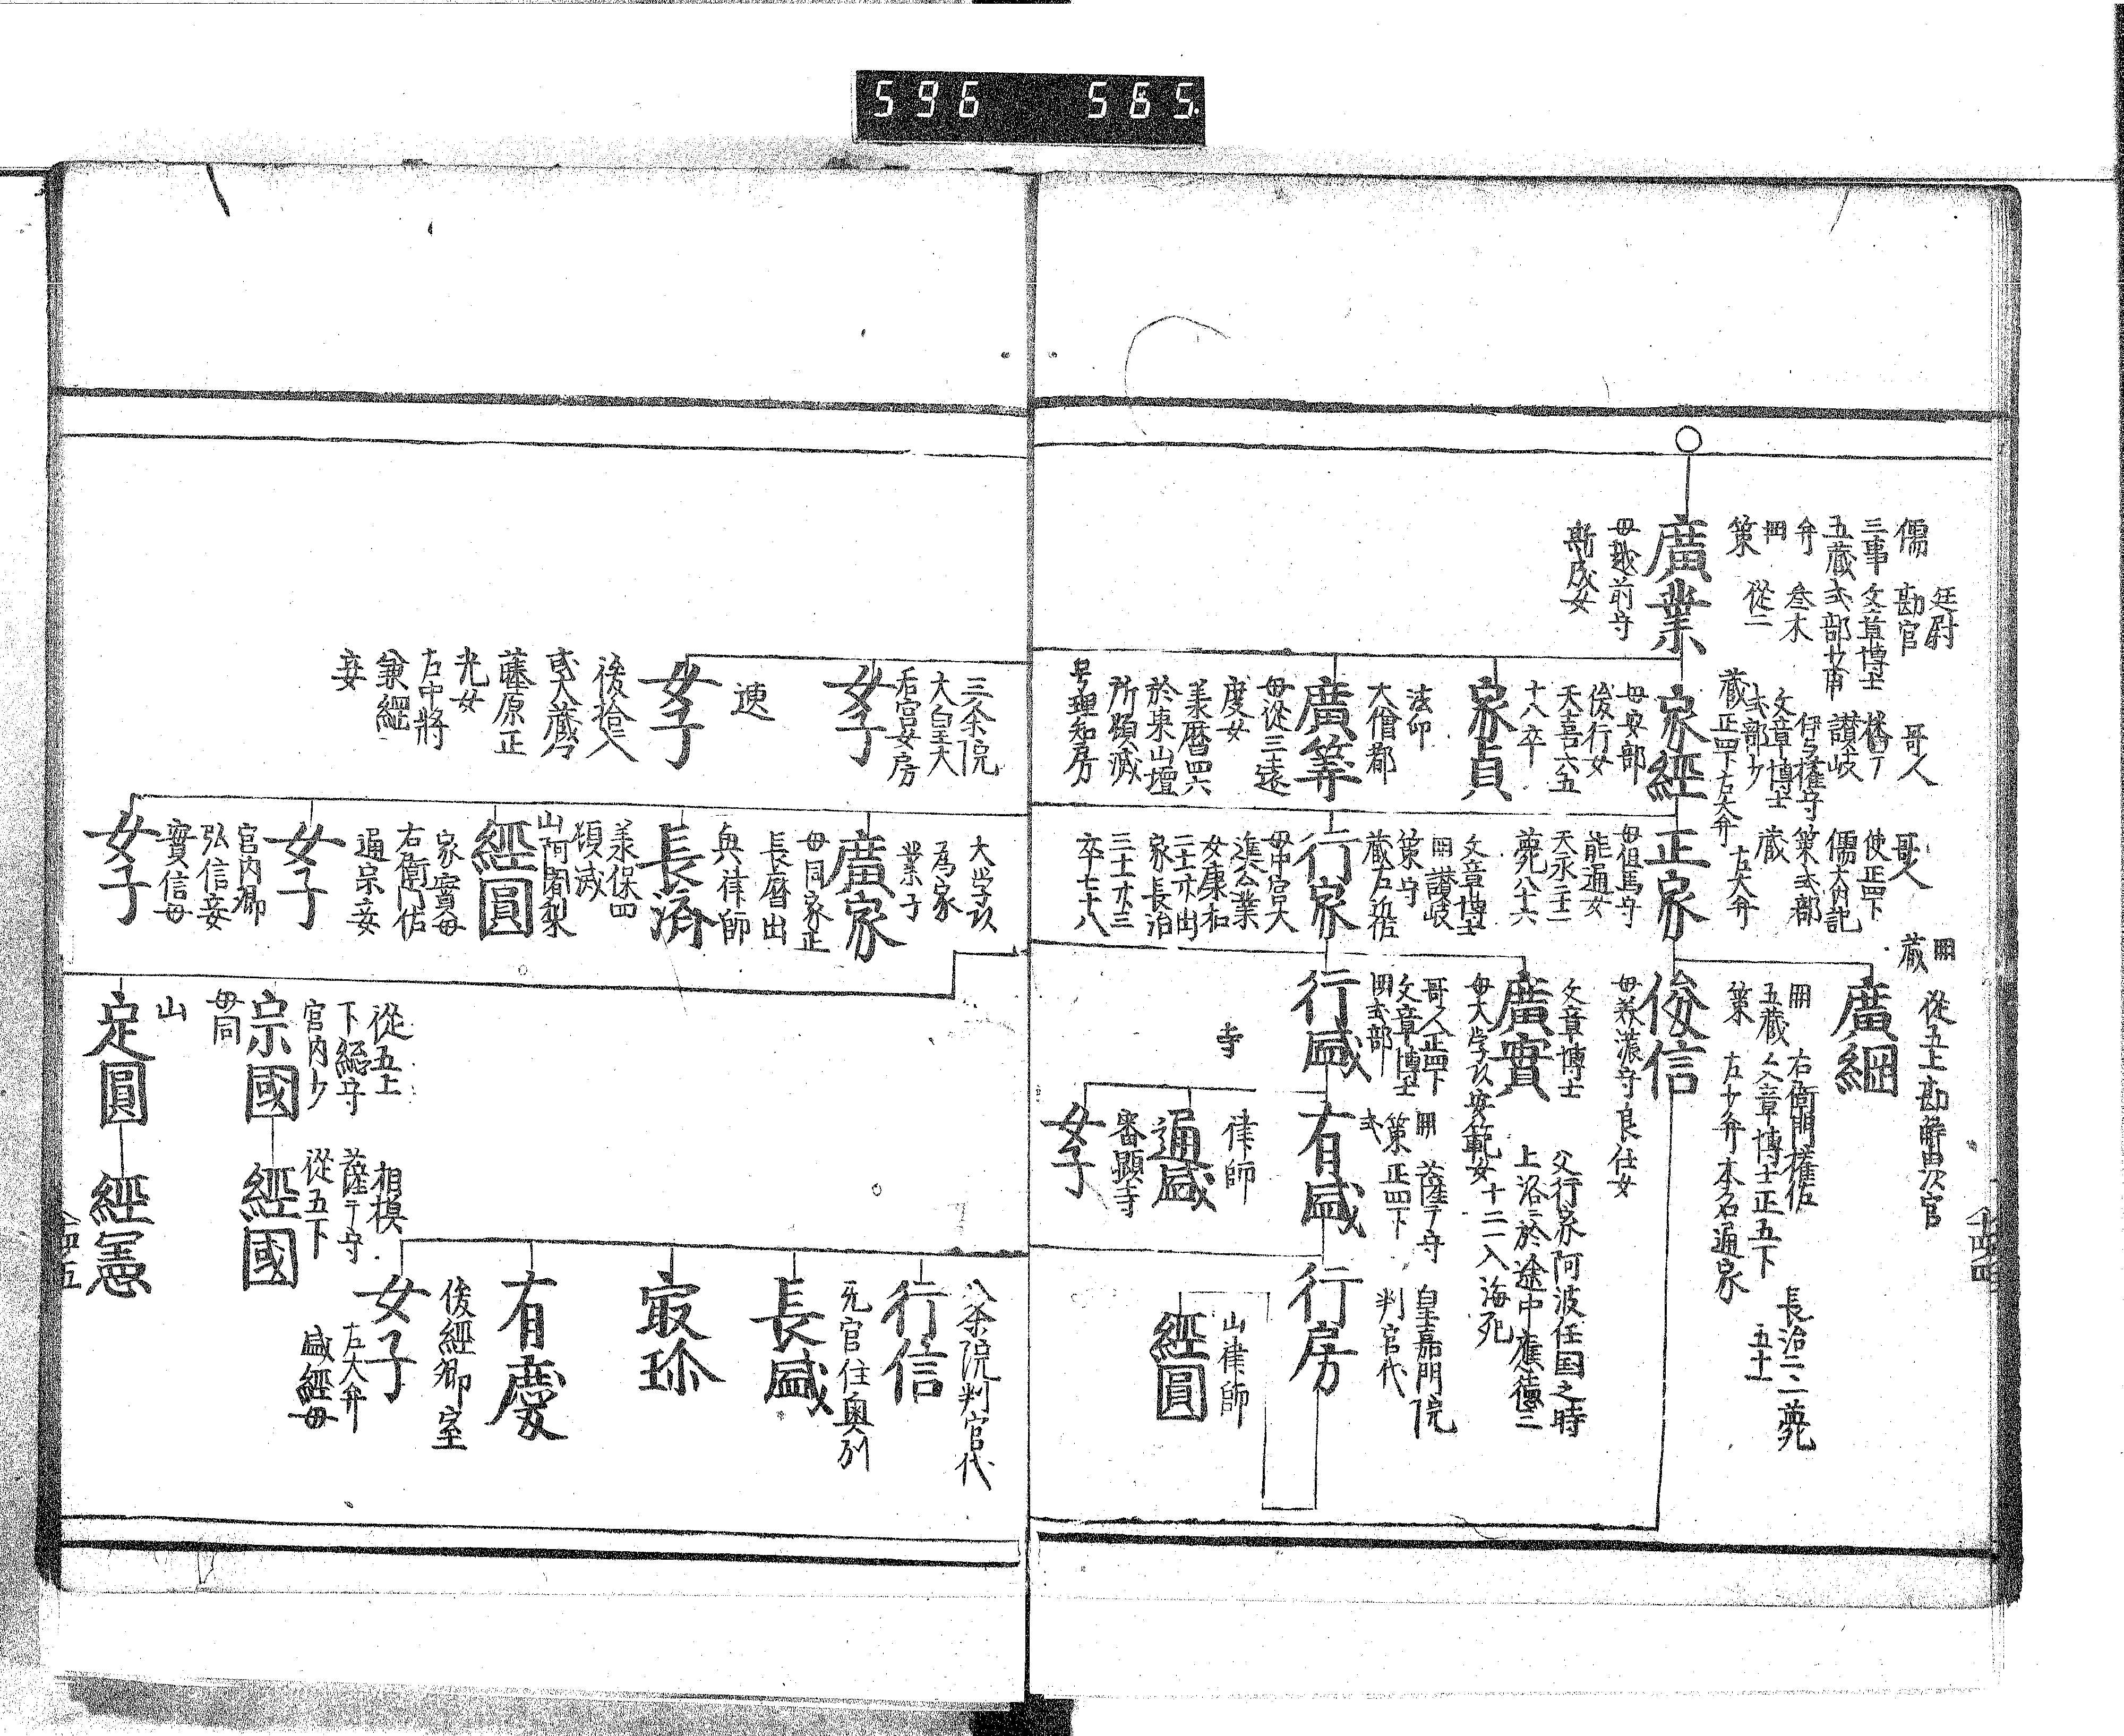 596 565
廷尉
儒 勘官
三事 文章博士
五蔵 式部少甫
弁 参木
策 従二
廣業
母越前守
斯成女
哥人
讃岐
伊与権守
文章博士
式部少
蔵 正四下左大弁
家經
母安部
俊行女
天喜六五
十八卒
家貞
法印
大僧都
廣筭
母従三遠
度女
美暦四六
於東山壇
所頓滅
号理知房
哥人
使正四下
儒大内記
策式部
蔵
左大弁
正家
母但馬守
能通女
天永二十二
薨八十六
文章博士
讃岐
策守
蔵左近佐
行家
母中宮大
進公業
女康和
二十一廿出
家長治
三十二廿三
卒七十八
蔵
従五上勘解由次官
廣綱
右衛門権佐
五蔵 文章博士正五下
策 左少弁本名通家
長治二二薨
五十一
俊信
母美濃守良仕女
文章博士
廣實
母大学頭實範女
父行家阿波任国之時
上洛於途中應徳三
十二二入海死
哥人正四下
文章博士
式部
行盛
寺
薩广守
策正四下
式
有盛
律師
通盛
審顕寺
女子
皇嘉門院
判官代
行房
山律師
經圓
十四
三条院
大皇大
后宮女房
女子
速
女子
後拾入
或大蔵
藤原正
光女
左中将
兼經
妾
大学頭
為家
業子
廣家
母同家正
長暦出
興律師
長済
美保四
頓滅
山阿闍梨
經圓
家實母
右衛門佐
通宗妾
女子
宮内卿
弘信妾
實信母
女子
従五上
下総守
宮内少
宗國
母同
山
定圓
相模
薩广守
従五下
經國
經憲
八条院判官代
行信
死官住奥州
長盛
最珎
有慶
俊經卿室
女子
左大弁
盛經母